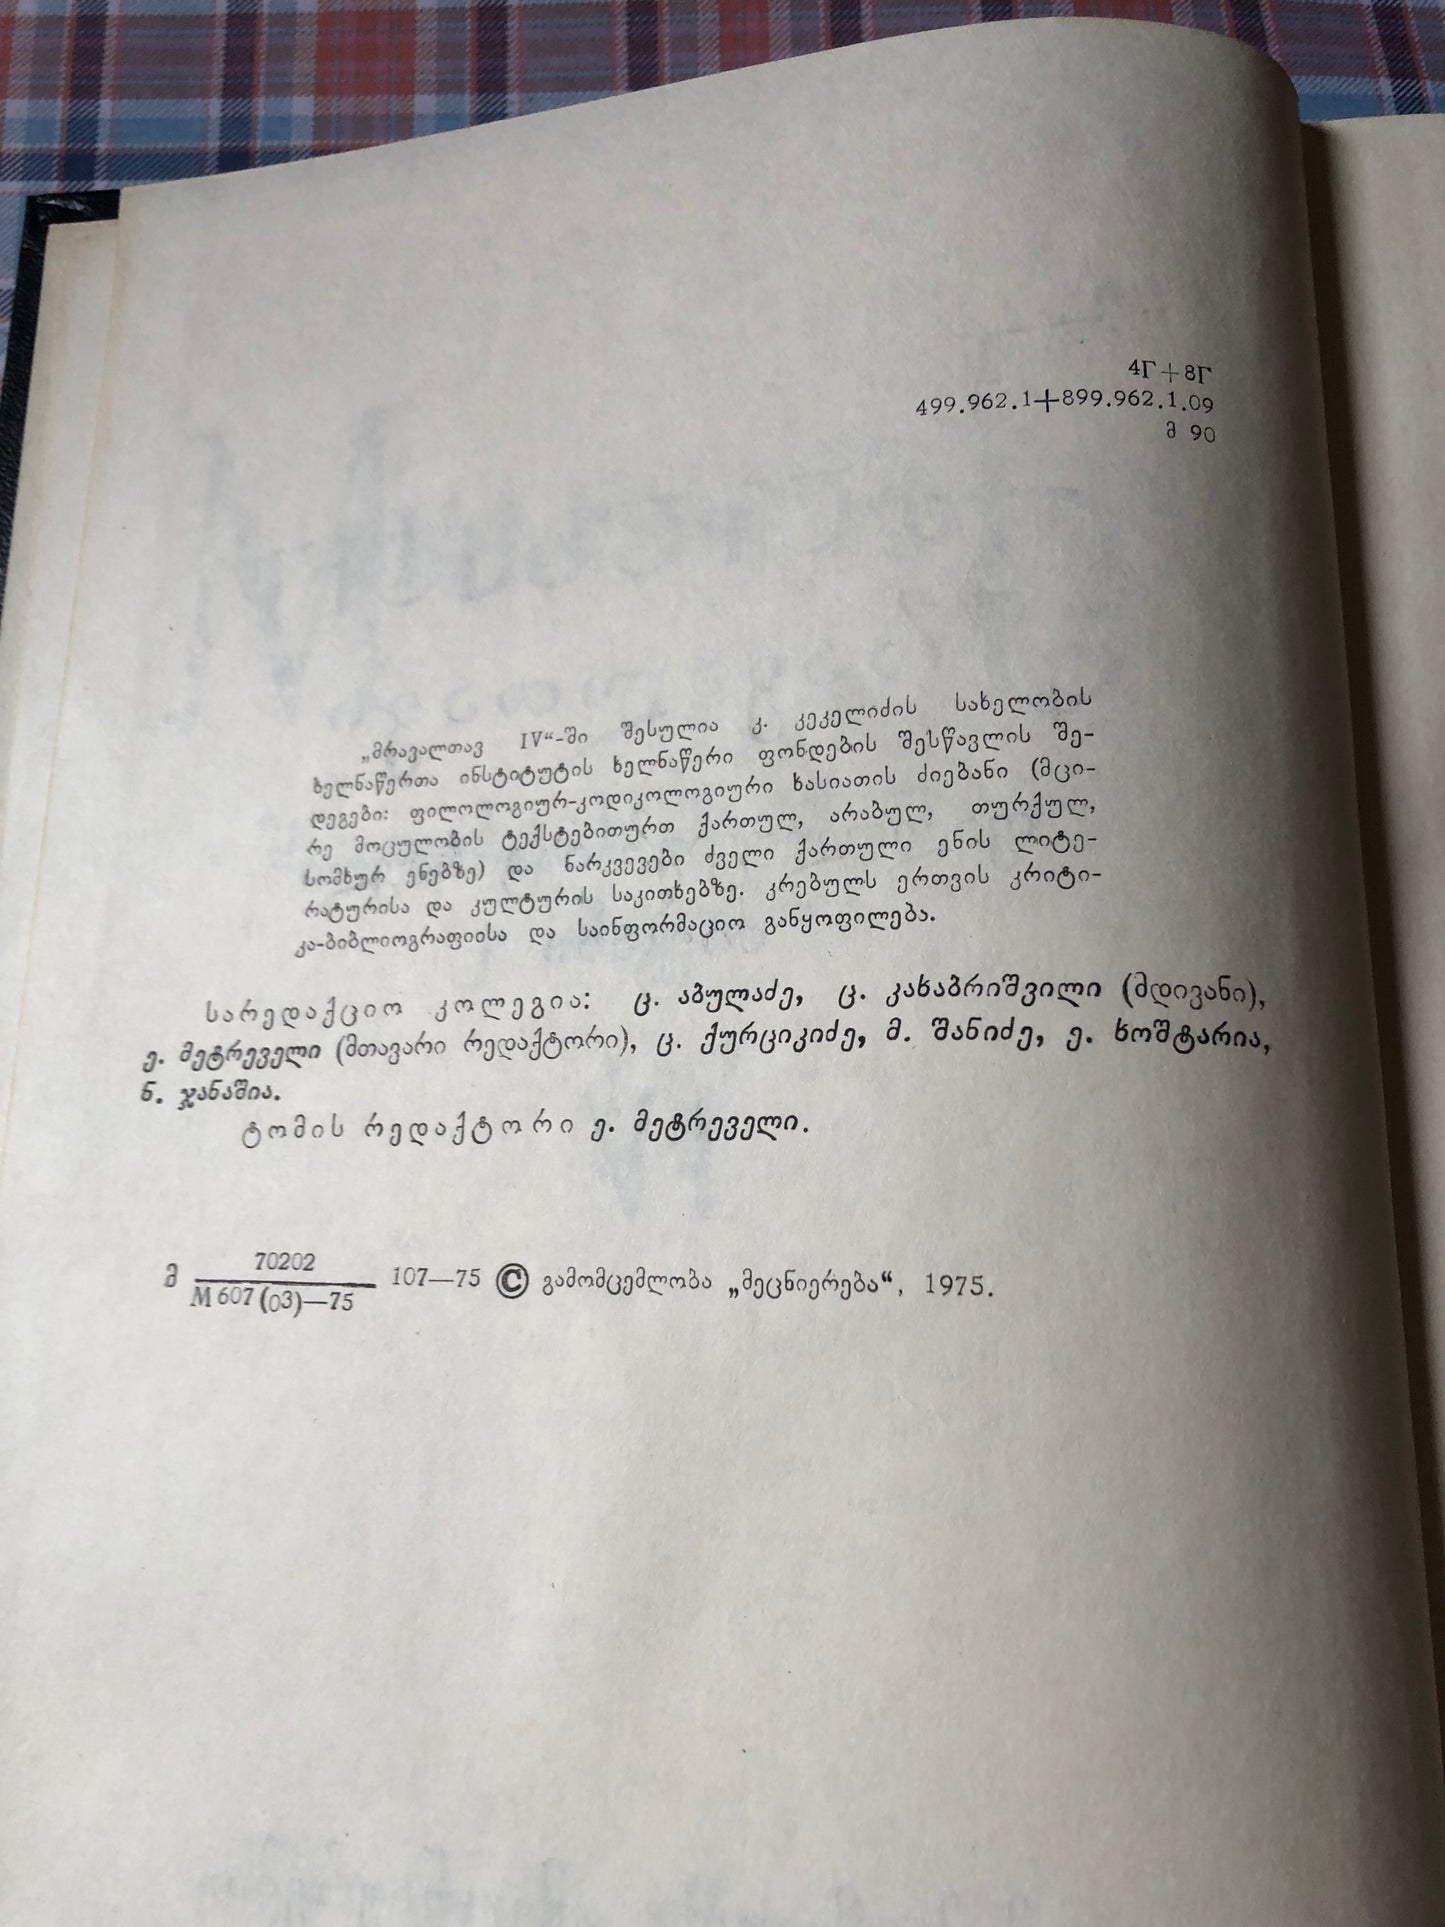 4Г+8Г
499.962.1+899.962.1.09
მ 90
„მრავალთავ IV“-ში შესულია კ. კეკელიძის სახელობის
ხელნაწერთა ინსტიტუტის ხელნაწერი ფონდების შესწავლის შე-
დეგები: ფილოლოგიურ-კოდიკოლოგიური ხასიათის ძიებანი (მცი-
რე მოცულობის ტექსტებითურთ ქართულ, არაბულ, თურქულ,
სომხურ ენებზე) და ნარკვევები ძველი ქართული ენის ლიტე-
რატურისა და კულტურის საკითხებზე. კრებულს ერთვის კრიტი-
კა-ბიბლიოგრაფიისა და საინფორმაციო განყოფილება.
სარედაქციო კოლეგია: ც. აბულაძე, ც. კახაბრიშვილი (მდივანი),
ე. მეტრეველი (მთავარი რედაქტორი), ც. ქურციკიძე, მ. შანიძე, ე. ხოშტარია,
ნ. ჯანაშია.
ტომის რედაქტორი ე. მეტრეველი.
მ 70202
M 607 (03)—75 107—75 © გამომცემლობა „მეცნიერება“, 1975.